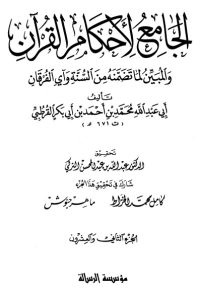 الجامع لأحكام القرآن
والمبين لما تضمنه من السنة وآي الفرقان
تأليف
أبي عبد الله محمد بن أحمد بن أبي بكر القرطبي
(ت ٦٧١ هـ)
تحقيق
الدكتور عبد الله بن عبد المحسن التركي
شارك في تحقيق هذا الجزء
كامل محمد الخراط ماهر حبوش
الجزء الثاني والعشرون
مؤسسة الرسالة